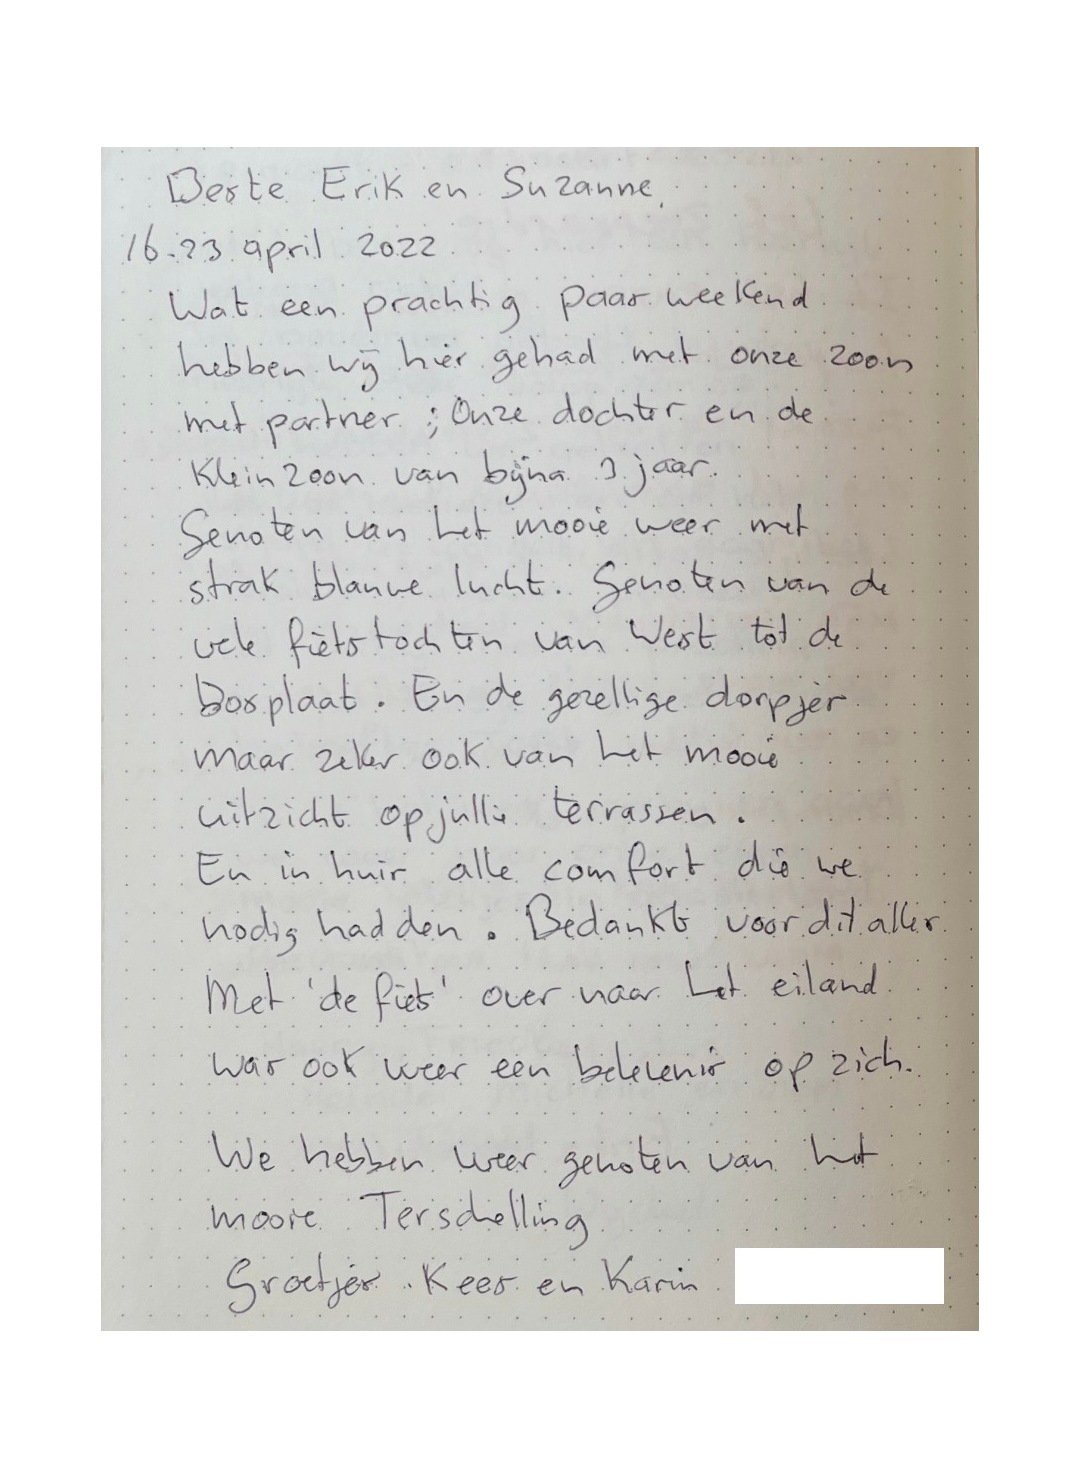 Beste Erik en Suzanne,
16-23 april 2022
Wat een prachtig paasweekend
hebben wij hier gehad met onze zoon
met partner ; Onze dochter en de
Kleinzoon van bijna 3 jaar.
Genoten van het mooie weer met
strak blauwe lucht. Genoten van de
vele fietstochten van West tot de
Bosplaat. En de gezellige dorpjes
maar zeker ook van het mooie
uitzicht op jullie terrassen.
En in huis alle comfort die we
nodig hadden. Bedankt voor dit alles
Met 'de fiets' over naar het eiland
was ook weer een belevenis op zich.
We hebben weer genoten van het
mooie Terschelling
Groetjes Kees en Karin